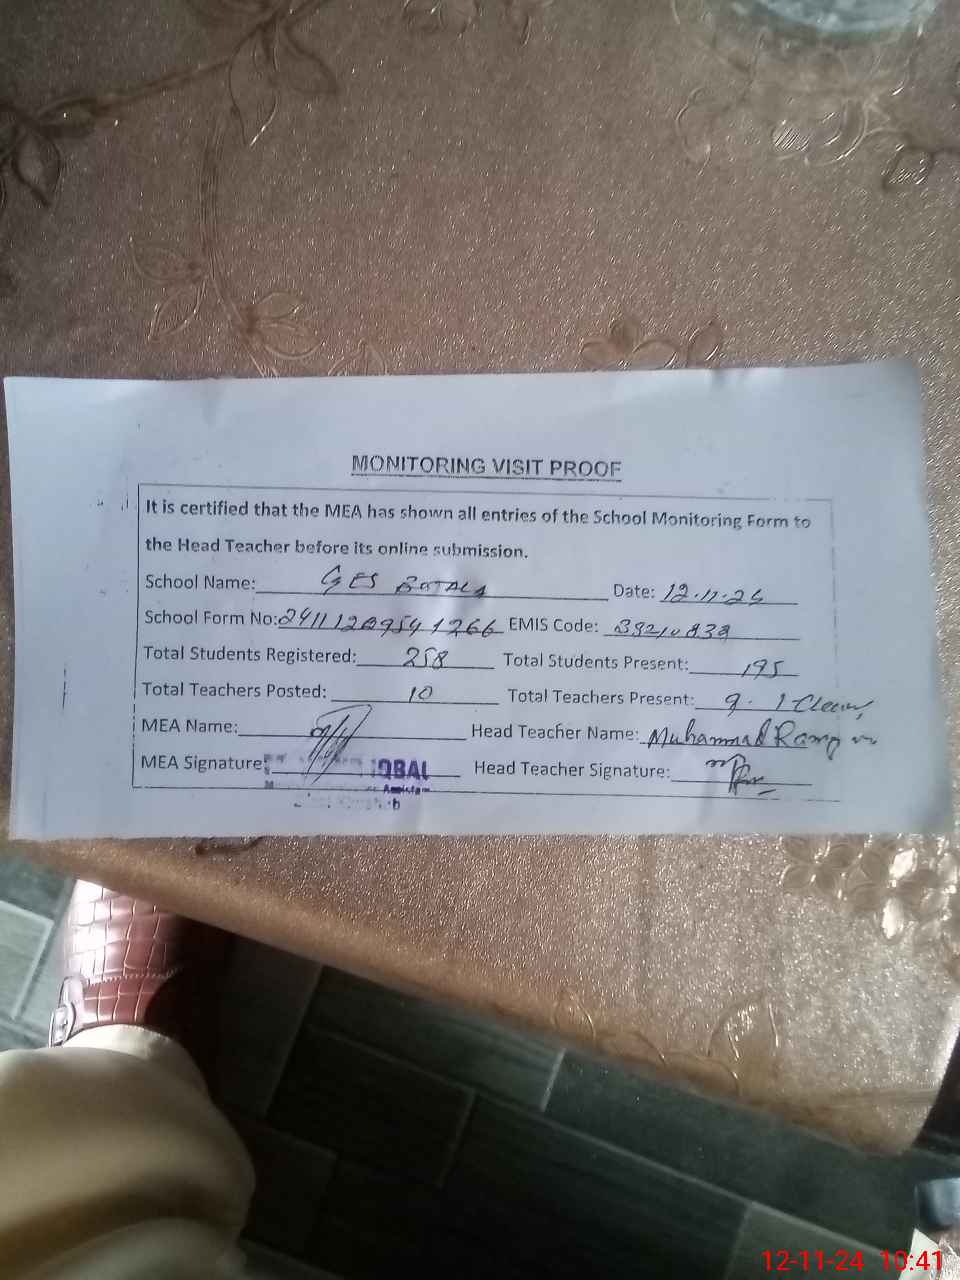 MONITORING VISIT PROOF
It is certified that the MEA has shown all entries of the School Monitoring Form to
the Head Teacher before its online submission.
School Name: GES BOTALA Date: 12.11.24
School Form No: 24111209541266 EMIS Code:
Total Students Registered: 258 Total Students Present: 195
Total Teachers Posted: 10 Total Teachers Present: 9. 1-
MEA Name: Head Teacher Name: Muhammad
MEA Signature: IQBAL Head Teacher Signature:
12-11-24 10:41